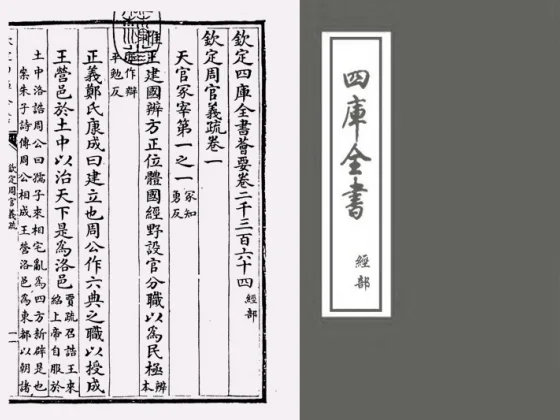 欽定四庫全書薈要卷二千三百六十四 經部
欽定周官義疏卷一
天官冢宰第一之一 冢知勇反
惟王建國辨方正位體國經野設官分職以為民極 辨本作辦平勉反
正義鄭氏康成曰建立也周公作六典之職以授成
王營邑於土中以治天下是為洛邑 賈疏召誥王來紹上帝自服於
土中洛誥周公曰孺子來相宅亂為四方新辟是也
案朱子詩傳周公相成王營洛邑為東都以朝諸
欽定周官義疏
四庫全書
經部